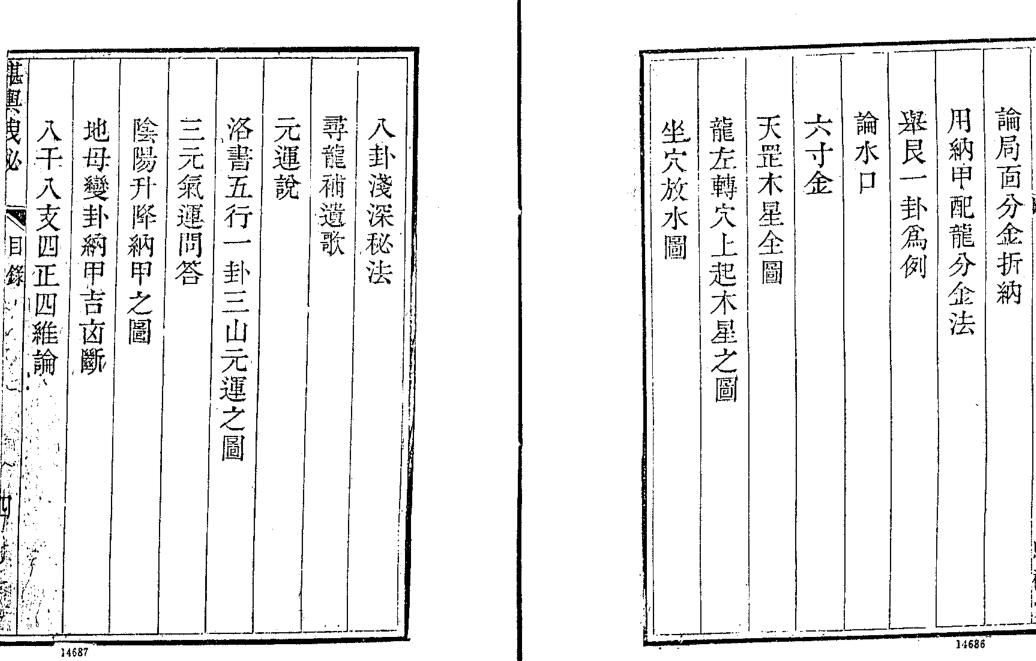 論局面分金折納
用納甲配龍分金法
舉艮一卦爲例
論水口
六寸金
天罡木星全圖
龍左轉穴上起木星之圖
坐穴放水圖
14686
八卦淺深秘法
尋龍補遺歌
元運說
洛書五行一卦三山元運之圖
三元氣運問答
陰陽升降納甲之圖
地母變卦納甲吉凶斷
八干八支四正四維論
堪輿洩秘
目錄
四
14687